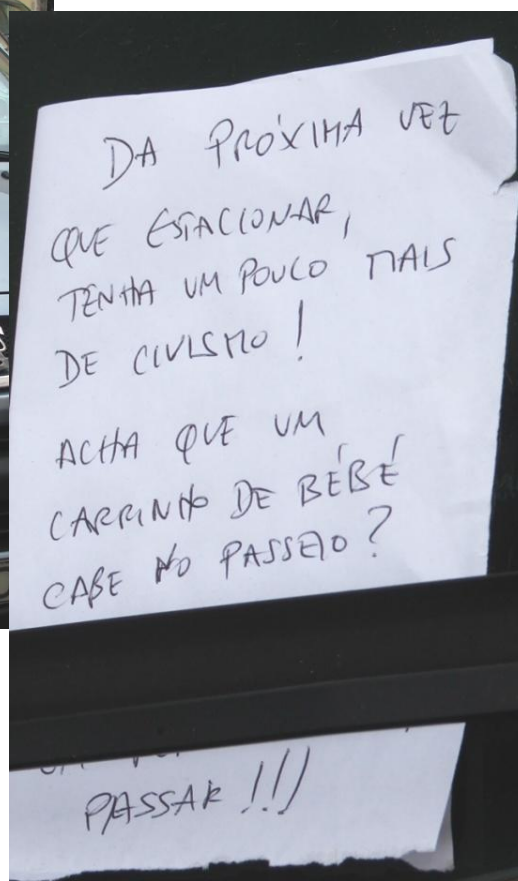 DA PRÓXIMA VEZ
QUE ESTACIONAR,
TENHA UM POUCO MAIS
DE CIVISMO!
ACHA QUE UM
CARRINHO DE BÉBÉ
CABE NO PASSEIO?
PASSAR!!!